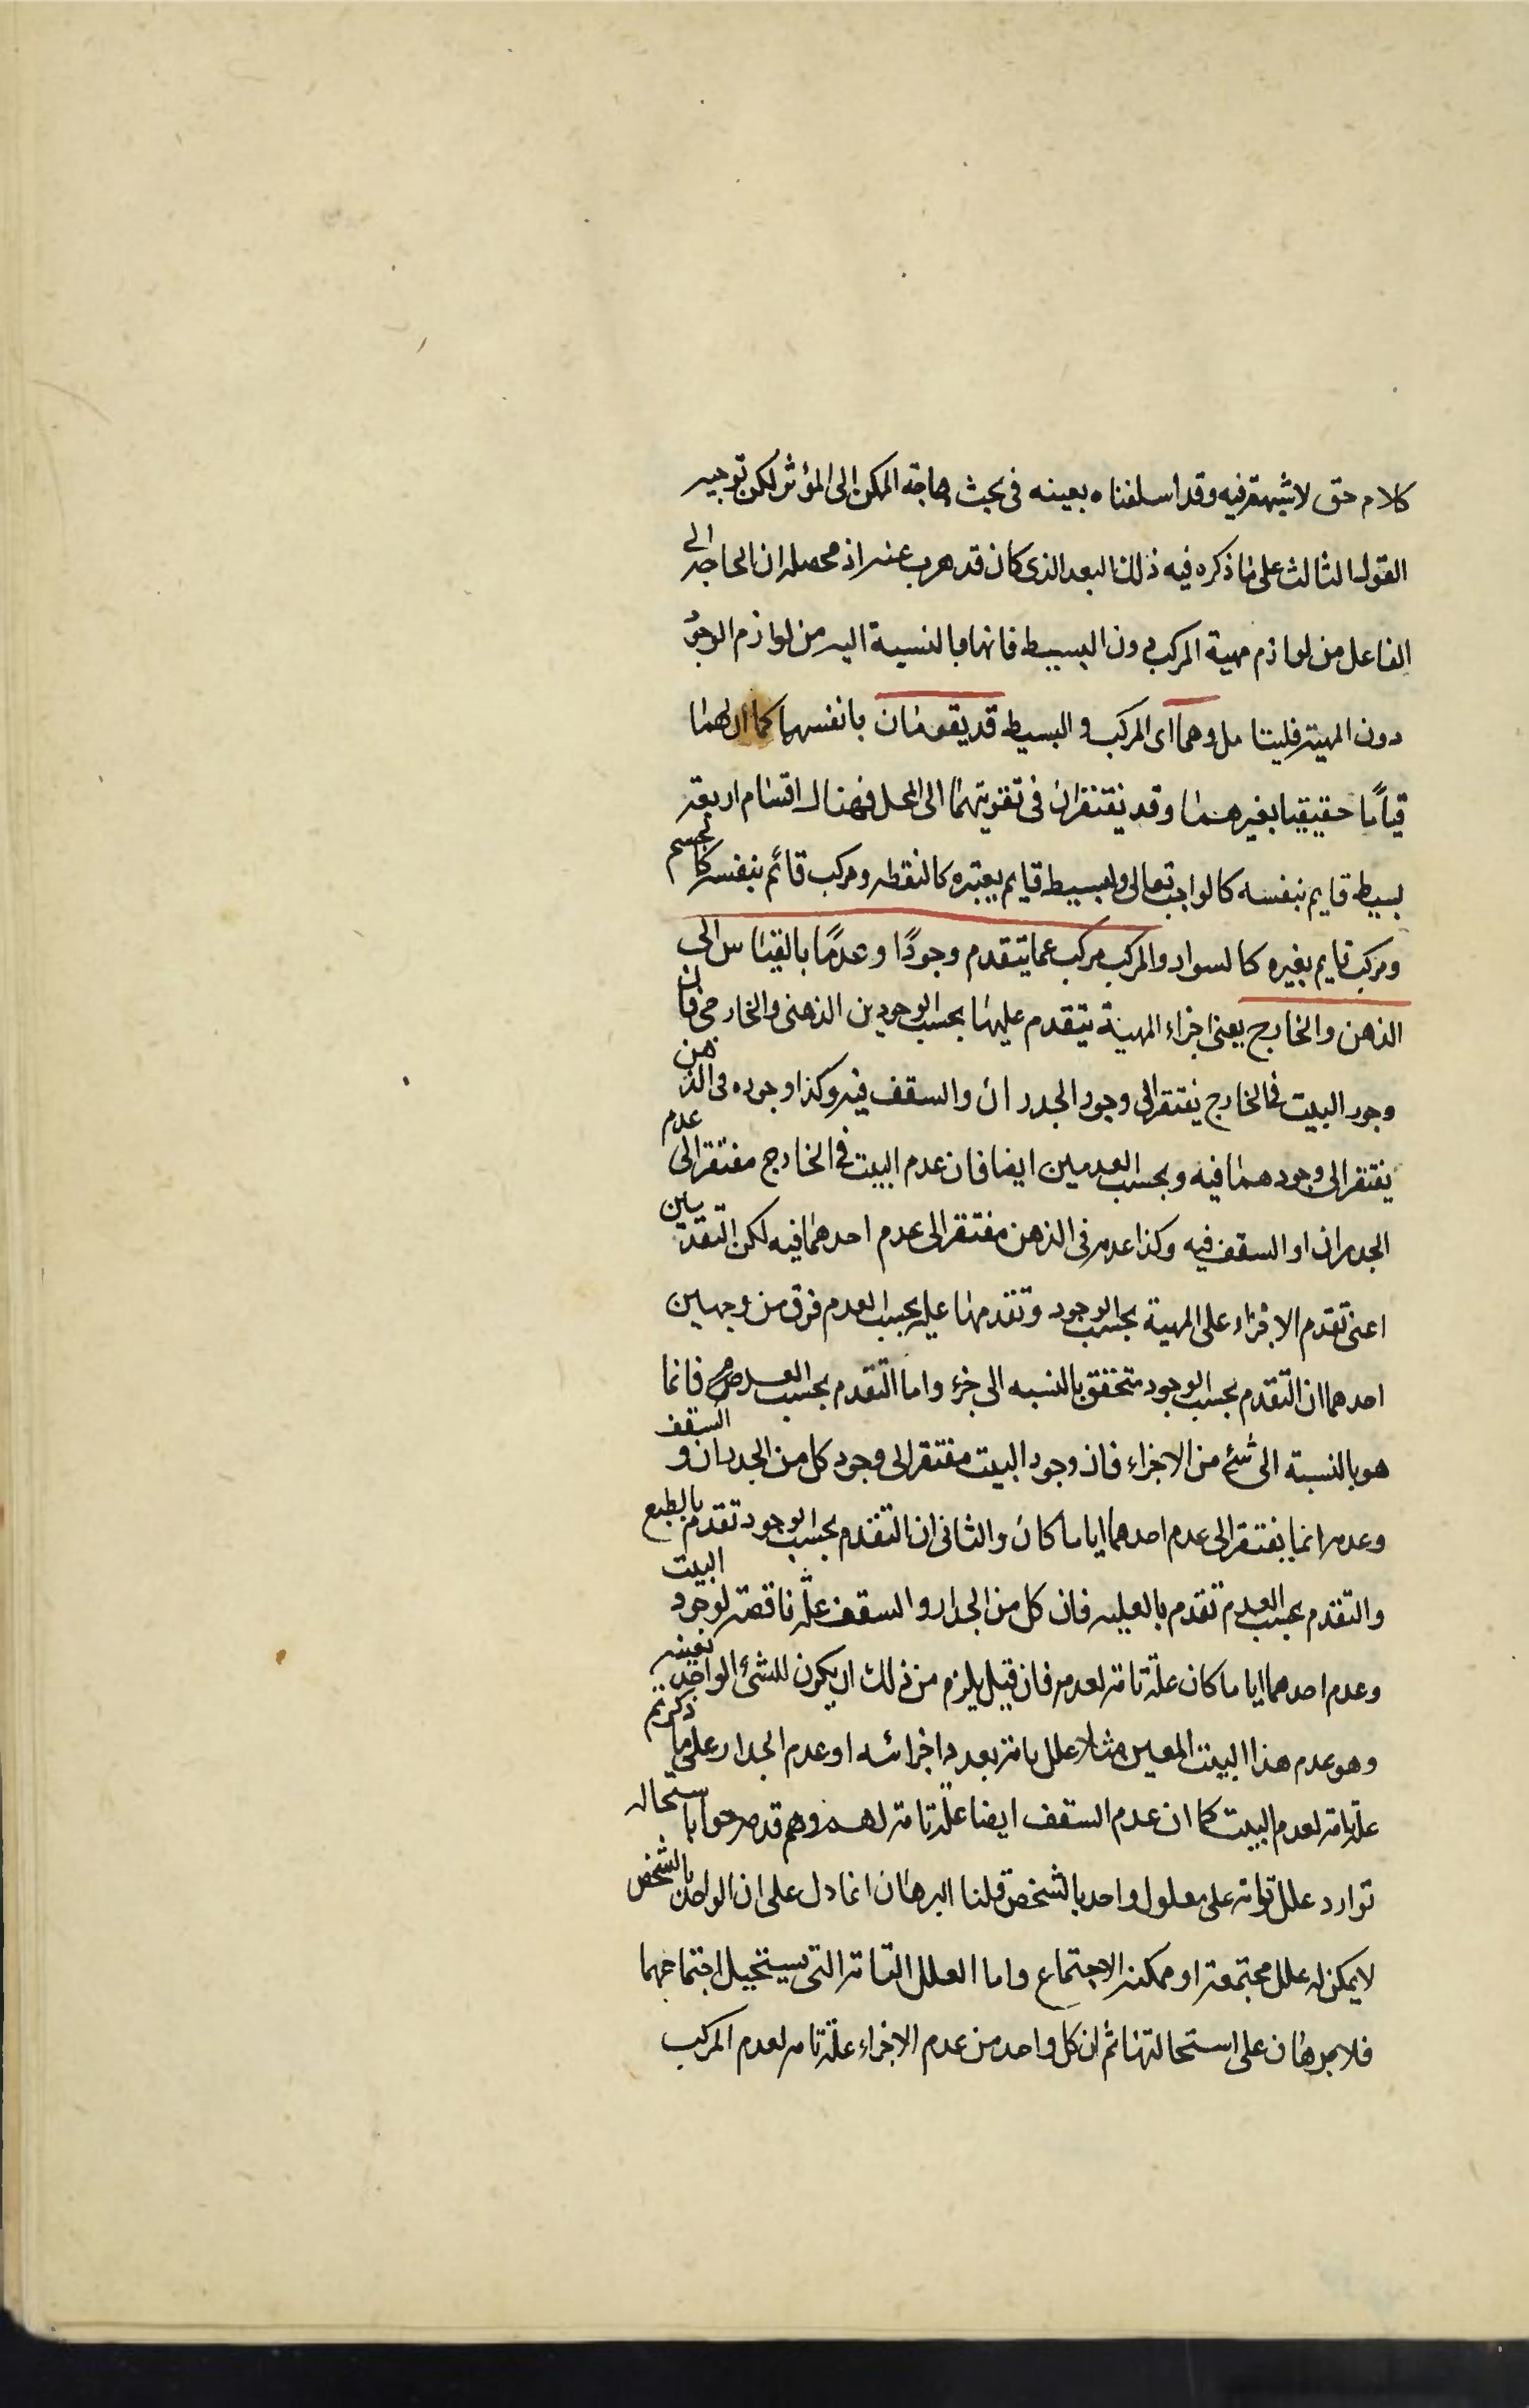 كلام حق لا شبهة فيه وقد اسلفناه بعينه في بحث حاجة الممكن الى المؤثر لكن توجيه
القول الثالث على ما ذكره فيه ذلك البعد الذى كان قد هرب عنه اذ محصله ان الحاجة الى
الفاعل من لوازم مهية المركب دون البسيط فانها بالنسبة اليه من لوازم الوجود
دون المهية فليتامل وهما اى المركب و البسيط قد يقومان بانفسهما كما ان لهما
قياما حقيقيا بغيرهما وقد يفتقران في تقويتهما الى المحل فهناك اقسام اربعة
بسيط قايم بنفسه كالواجب تعالى وبسيط قايم بغيره كالنقطه ومركب قائم بنفسه كالجسم
ومركب قايم بغيره كالسواد والمركب مركب عما يتقدم وجودًا وعدمًا بالقياس الى
الذهن والخارج يعنى اجزاء المهية يتقدم عليها بحسب الوجودين الذهنى والخارجى فان
وجود البيت فى الخارج يفتقر الى وجود الجدران والسقف فيه وكذا وجوده فى الذهن
يفتقر الى وجودهما فيه وبحسب العدمين ايضا فان عدم البيت فى الخارج مفتقر الى عدم
الجدران او السقف فيه وكذا عدمه فى الذهن مفتقر الى عدم احدهما فيه لكن التقدمين
اعنى تقدم الاجزاء على المهية بحسب الوجود وتقدمها عليه بحسب العدم فرق من وجهين
احدهما ان التقدم بحسب الوجود متحقق بالنسبه الى جزء واما التقدم بحسب العدم فانما
هو بالنسبة الى شئ من الاجزاء فان وجود البيت مفتقر الى وجود كل من الجدران و السقف
وعدمه انما يفتقر الى عدم احدهما اياما كان والثانى ان التقدم بحسب الوجود تقدم بالطبع
والتقدم بحسب العدم تقدم بالعليه فان كل من الجدار و السقف علّة ناقصة لوجود البيت
وعدم احدهما اياما كان علّة تامة لعدمه فان قيل يلزم من ذلك ان يكون للشئ الواحد بعينه
وهو عدم هذا البيت المعين مثلا علل تامة بعدد اجزائه اذ عدم الجدار على ما ذكرتم
علة تامة لعدم البيت كما ان عدم السقف ايضا علّة تامة له وهم قد صرحوا باستحاله
توارد علل تامة على معلول واحد بالشخص قلنا البرهان انما دل على ان الواحد بالشخص
لا يمكن له علل مجتمعة او ممكنة الاجتماع واما العلل التامة التى يستحيل اجتماعهما
فلا برهان على استحالتها ثم ان كل واحد من عدم الاجزاء علّة تامه لعدم المركب